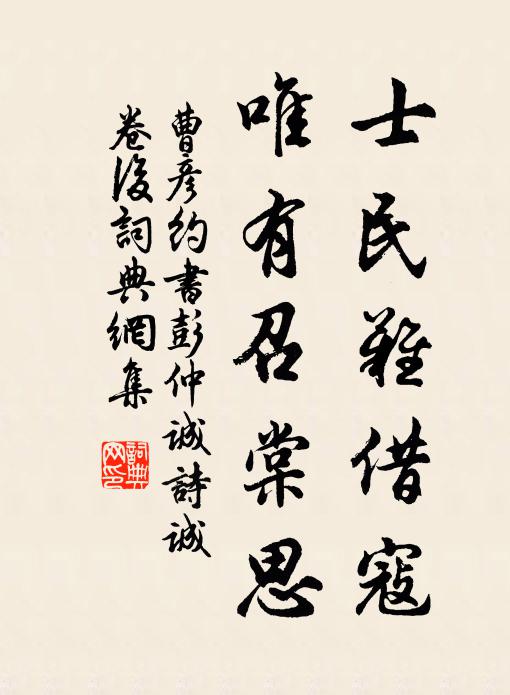 士民難借寇
唯有召棠思
曹彦約書彭仲誠詩誠
卷後詞典網集
詞典網印